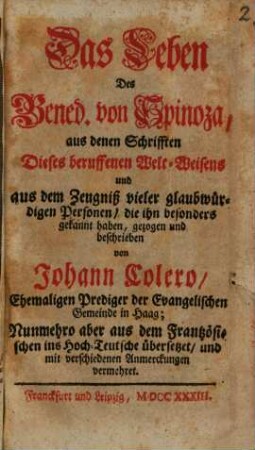 2
Das Leben
Des
Bened. von Spinoza/
aus denen Schrifften
Dieses beruffenen Welt-Weisens
und
aus dem Zeugniß vieler glaubwür-
digen Personen/ die ihn besonders
gekannt haben, gezogen und
beschrieben
von
Johann Colero/
Ehemaligen Prediger der Evangelischen
Gemeinde in Haag;
Nunmehro aber aus dem Frantzösi-
schen ins Hoch-Teutsche übersetzet/ und
mit verschiedenen Anmerckungen
vermehret.
Franckfurt und Leipzig, M.DCC XXXIII.